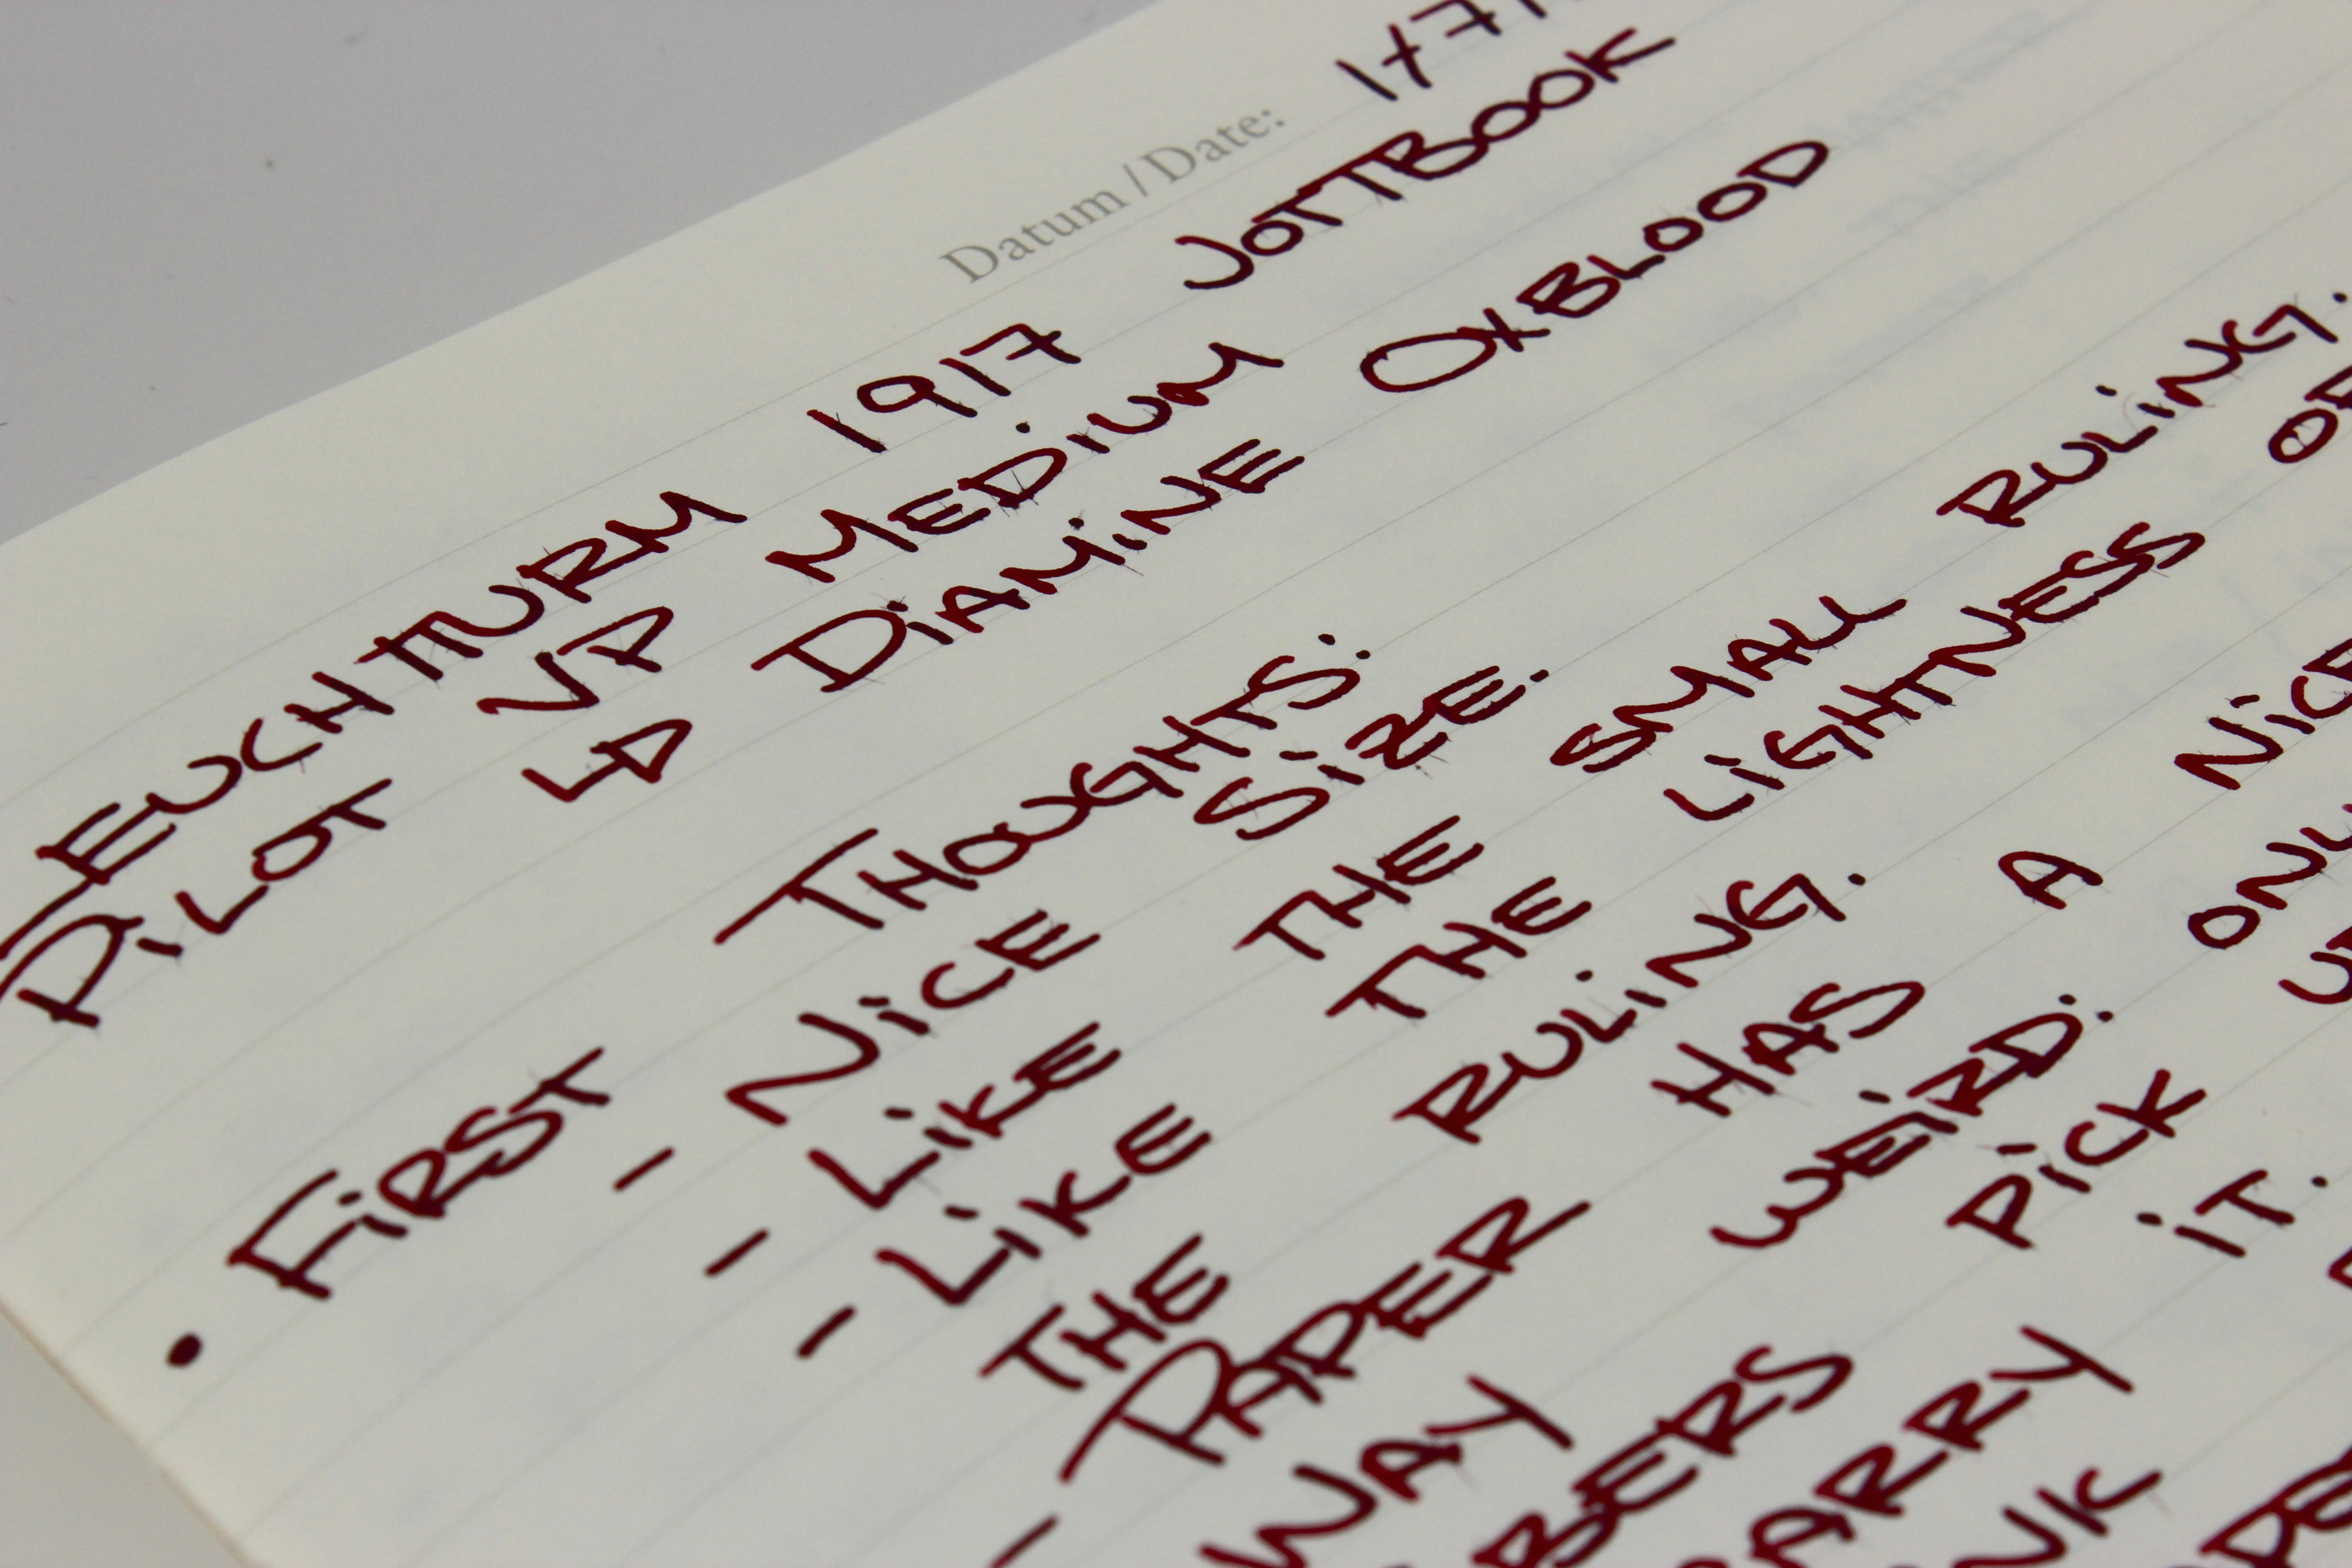 Datum / Date:
LEUCHTTURM 1917 JOTTBOOK
PILOT VP MEDIUM
↳ DIAMINE OXBLOOD
• FIRST THOUGHTS:
- NICE SIZE.
- LIKE THE SMALL RULING.
- LIKE THE LIGHTNESS OF
THE RULING.
- PAPER HAS A NICE
WAY
PICK
IT.